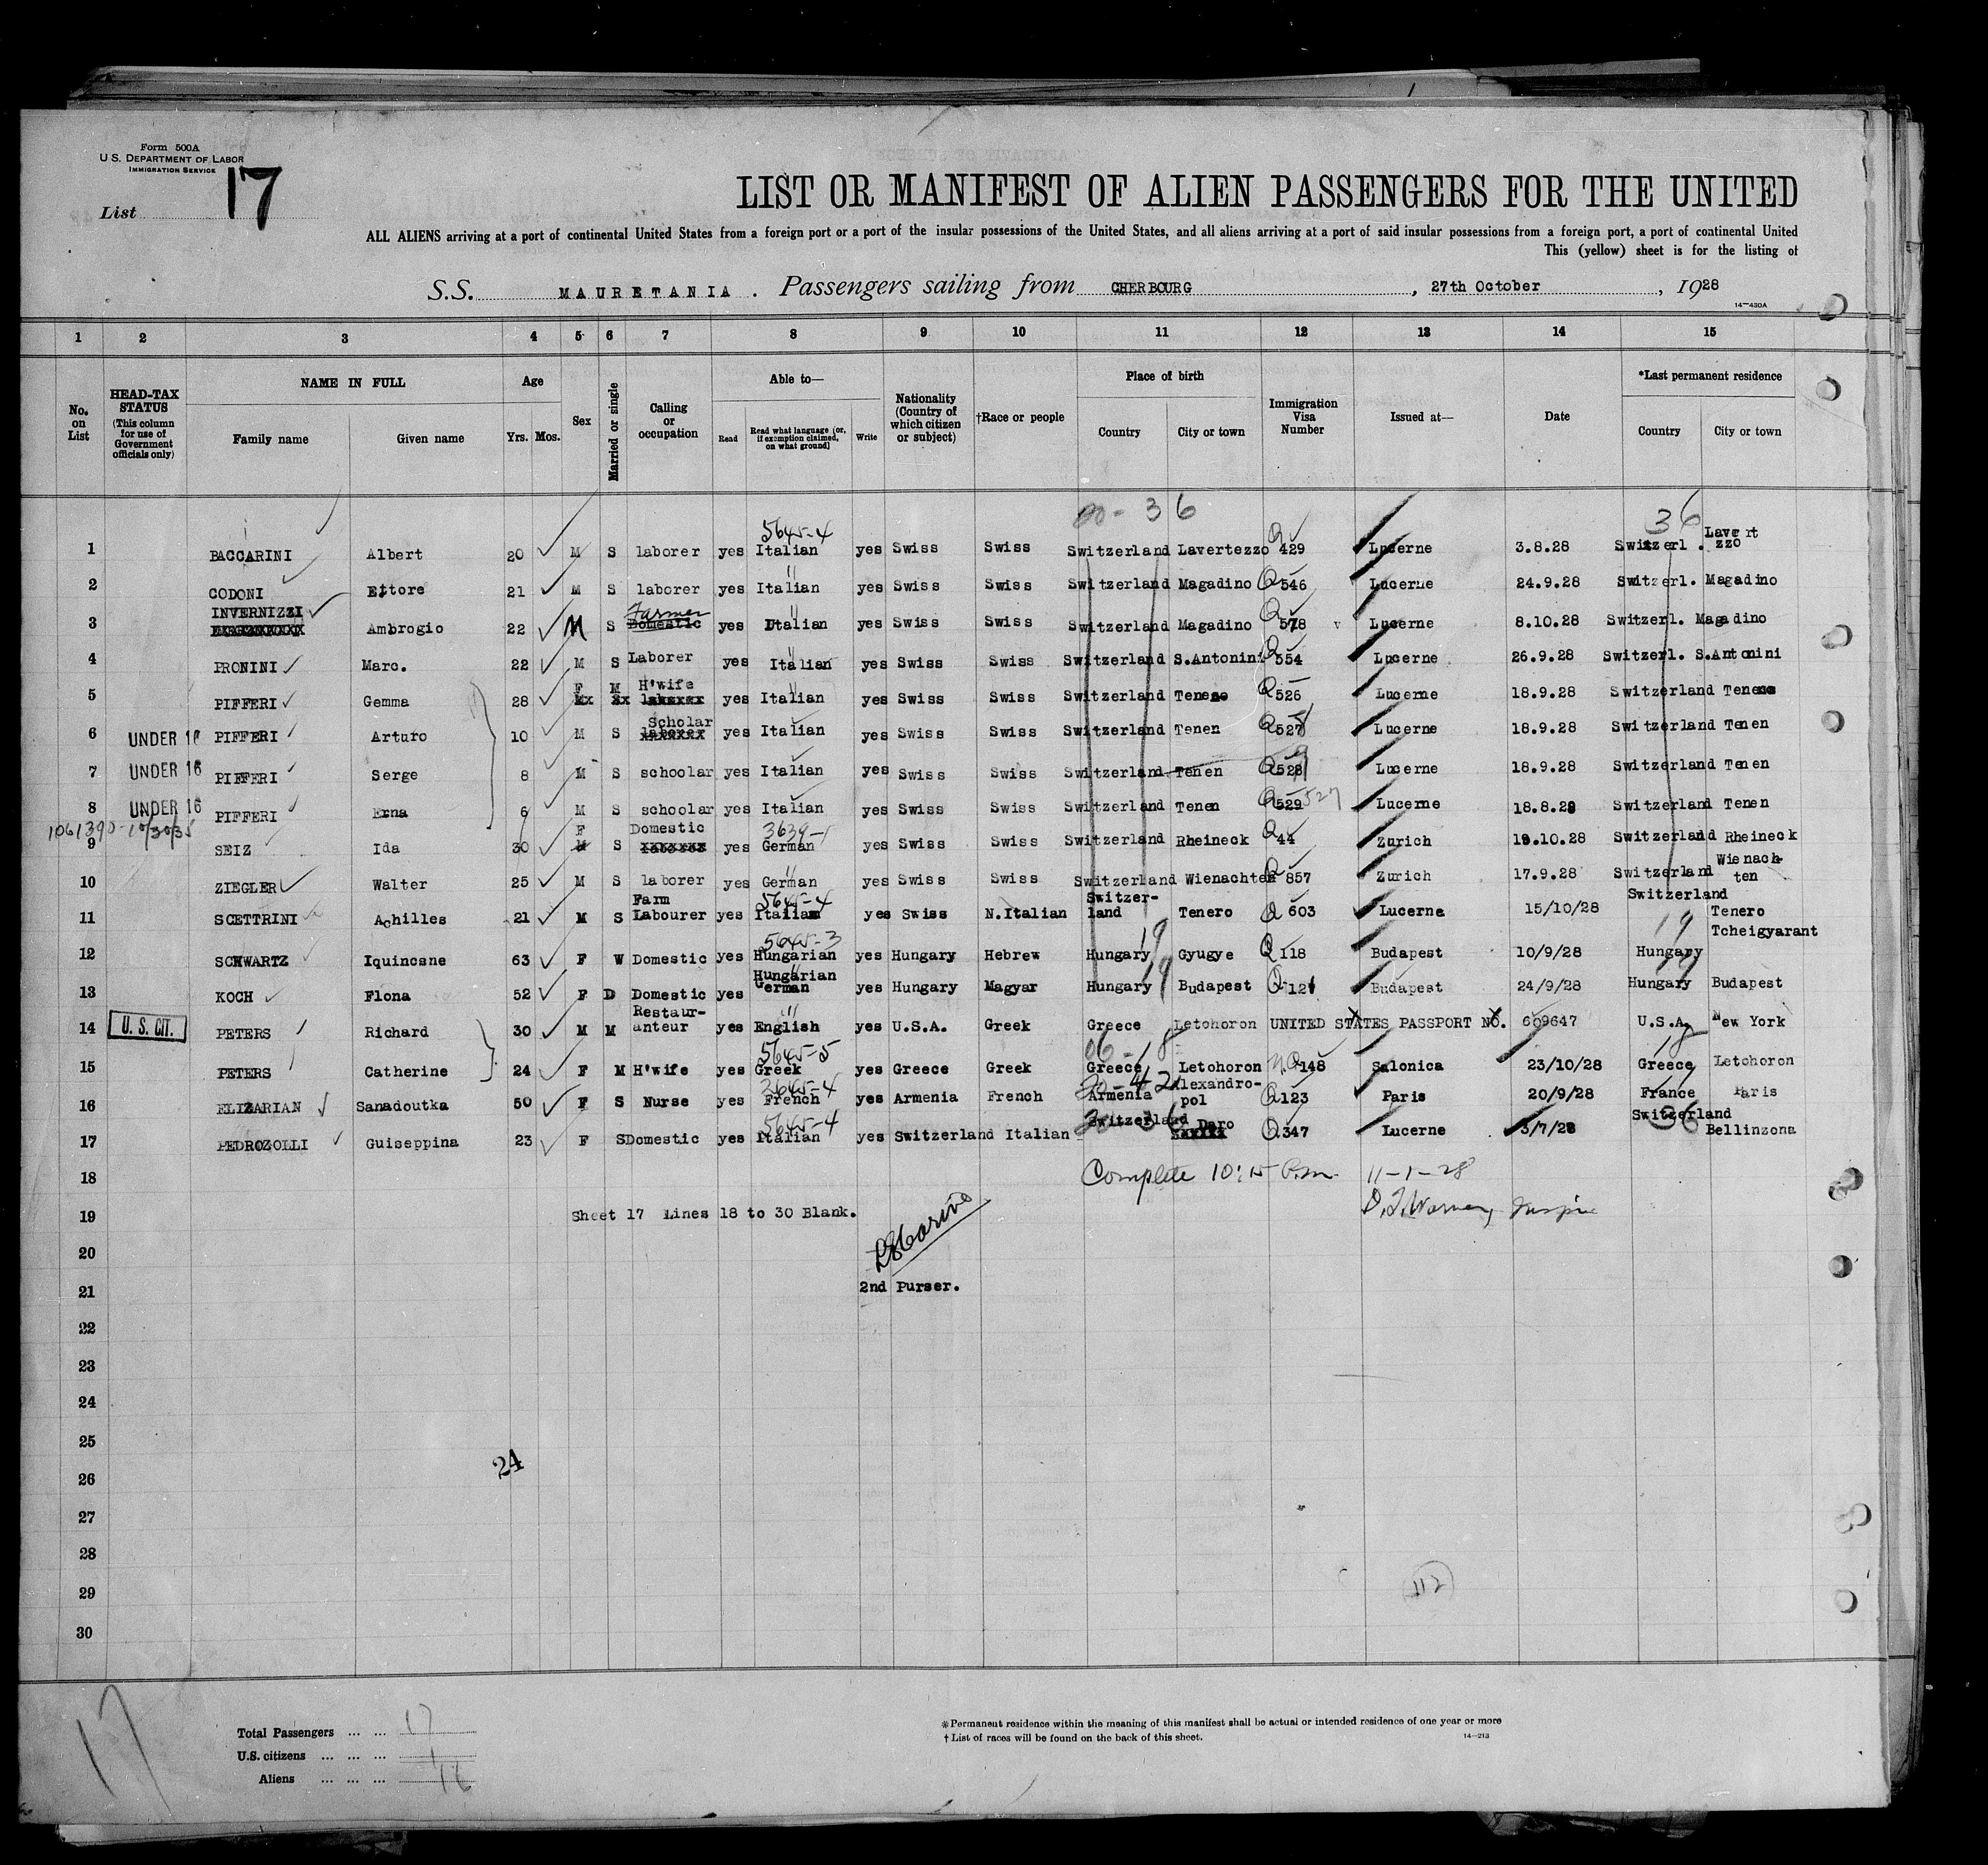 Form 500A
U.S. DEPARTMENT OF LABOR
IMMIGRATION SERVICE
List 17
LIST OR MANIFEST OF ALIEN PASSENGERS FOR THE UNITED
ALL ALIENS arriving at a port of continental United States from a foreign port or a port of the insular possessions of the United States, and all aliens arriving at a port of said insular possessions from a foreign port, a port of continental United
This (yellow) sheet is for the listing of
S.S. MAURETANIA. Passengers sailing from CHERBOURG, 27th October, 1928
14—430A
1 2 3 4 5 6 7 8 9 10 11 12 13 14 15
No. on List
HEAD-TAX STATUS (This column for use of Government officials only)
NAME IN FULL
Family name Given name
Age
Yrs. Mos.
Sex
Married or single
Calling or occupation
Able to—
Read Read what language (or, if exemption claimed, on what ground) Write
Nationality (Country of which citizen or subject)
†Race or people
Place of birth
Country City or town
Immigration Visa Number
Issued at—
Date
*Last permanent residence
Country City or town
36 36
5645-4
1 BACCARINI Albert 20 M S laborer yes Italian yes Swiss Swiss Switzerland Lavertezzo Q 429 Lucerne 3.8.28 Switzerl. Lavertzzo
2 CODONI Ettore 21 M S laborer yes Italian " yes Swiss Swiss Switzerland Magadino Q 546 Lucerne 24.9.28 Switzerl. Magadino
3 INVERNIZZI Ambrogio 22 M S Farmer Domestic yes Italian " yes Swiss Swiss Switzerland Magadino Q 578 Lucerne 8.10.28 Switzerl. Magadino
4 PRONINI Marc. 22 M S Laborer yes Italian " yes Swiss Swiss Switzerland S.Antonini Q 554 Lucerne 26.9.28 Switzerl. S.Antonini
5 PIFFERI Gemma 28 F M H'wife yes Italian " yes Swiss Swiss Switzerland Tenen Q 526 Lucerne 18.9.28 Switzerland Tenen
6 UNDER 16 PIFFERI Arturo 10 M S Scholar yes Italian yes Swiss Swiss Switzerland Tenen Q 527 8 Lucerne 18.9.28 Switzerland Tenen
7 UNDER 16 PIFFERI Serge 8 M S schoolar yes Italian yes Swiss Swiss Switzerland Tenen Q 528 9 Lucerne 18.9.28 Switzerland Tenen
8 UNDER 16 PIFFERI Erna 6 M S schoolar yes Italian yes Swiss Swiss Switzerland Tenen Q 529 527 Lucerne 18.8.28 Switzerland Tenen
1061390-10/30/35
3639-1
9 SEIZ Ida 30 F S Domestic yes German yes Swiss Swiss Switzerland Rheineck Q 44 Zurich 19.10.28 Switzerland Rheineck
10 ZIEGLER Walter 25 M S laborer yes German " yes Swiss Swiss Switzerland Wienachten Q 857 Zurich 17.9.28 Switzerland Wienachten
5645-4
11 SCETTRINI Achilles 21 M S Farm Labourer yes Italian yes Swiss N.Italian Switzerland Tenero Q 603 Lucerne 15/10/28 Switzerland Tenero
5645-3 19 19
12 SCHWARTZ Iquincsne 63 F W Domestic yes Hungarian yes Hungary Hebrew Hungary Gyugye Q 118 Budapest 10/9/28 Hungary Tcheigyarant
13 KOCH Flona 52 F D Domestic yes Hungarian German yes Hungary Magyar Hungary 19 Budapest Q 121 Budapest 24/9/28 Hungary 19 Budapest
14 U.S. CIT. PETERS Richard 30 M M Restauranteur yes English " yes U.S.A. Greek Greece Letohoron UNITED STATES PASSPORT NO. 609647 U.S.A. New York
5645-5 06-18 18
15 PETERS Catherine 24 F M H'wife yes Greek yes Greece Greek Greece Letohoron N.Q 148 Salonica 23/10/28 Greece Letohoron
3645-4
16 ELIZARIAN Sanadoutka 50 F S Nurse yes French yes Armenia French Armenia Alexandropol Q 123 Paris 20/9/28 France Paris
5645-4 36 36
17 PEDROZOLLI Guiseppina 23 F S Domestic yes Italian yes Switzerland Italian Switzerland Daro Q.347 Lucerne 3/7/28 Switzerland Bellinzona
18 Complete 10:15 P.m. 11-1-28
19 Sheet 17 Lines 18 to 30 Blank.
20
21 2nd Purser.
22
23
24
25
26 24
27
28
29 112
30
17
Total Passengers ... ... 17
U.S. citizens ... ... ... 1
Aliens ... ... ... 16
*Permanent residence within the meaning of this manifest shall be actual or intended residence of one year or more
† List of races will be found on the back of this sheet.
14—213